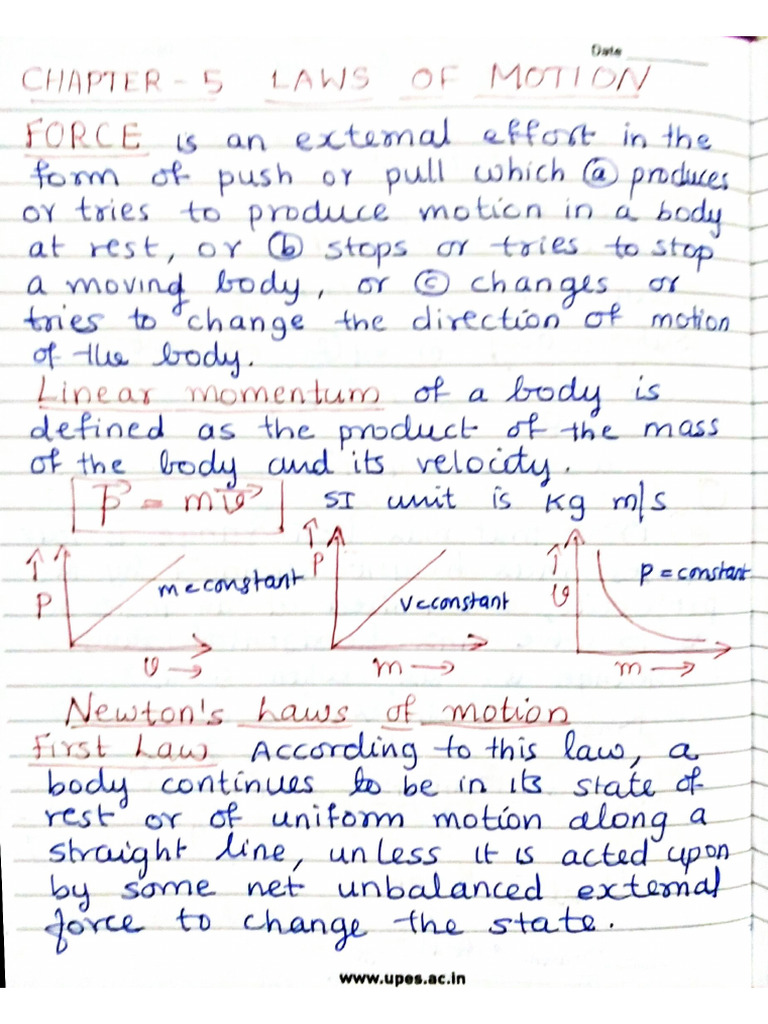 Date
CHAPTER - 5 LAWS OF MOTION
FORCE is an external effort in the
form of push or pull which ⓐ produces
or tries to produce motion in a body
at rest, or ⓑ stops or tries to stop
a moving body, or ⓒ changes or
tries to change the direction of motion
of the body.
Linear momentum of a body is
defined as the product of the mass
of the body and its velocity.
P⃗ = mv⃗ SI unit is kg m/s
↑ P m = constant v →
↑ P v = constant m →
↑ v P = constant m →
Newton's Laws of motion
First Law According to this law, a
body continues to be in its state of
rest or of uniform motion along a
straight line, unless it is acted upon
by some net unbalanced external
force to change the state.
www.upes.ac.in